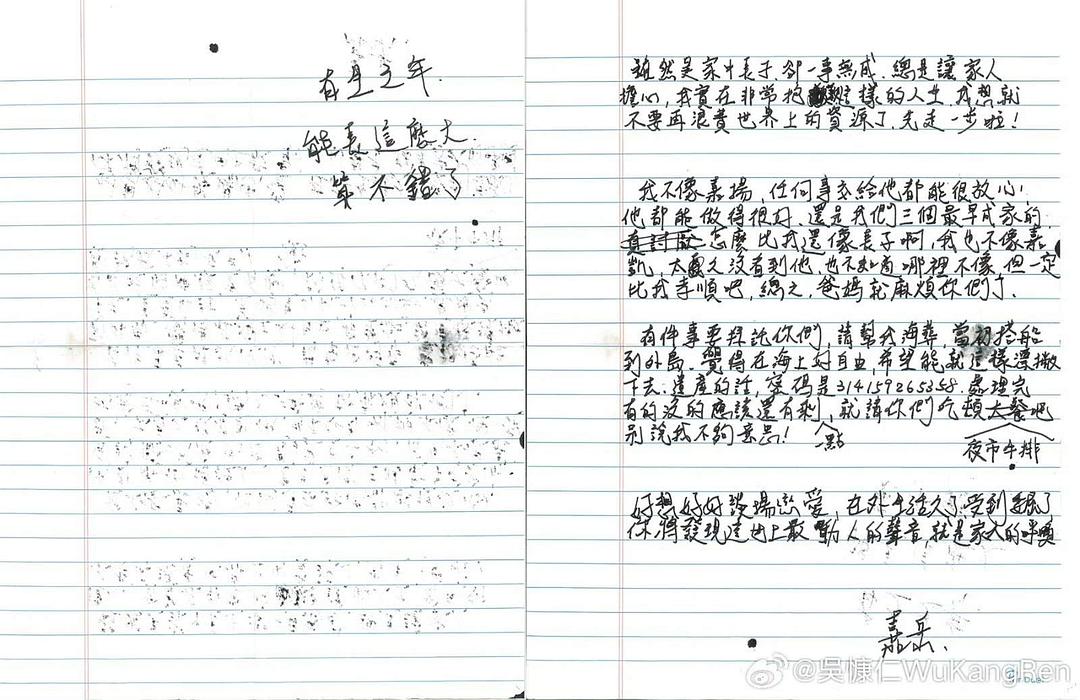 有生之年.
能長這麼大.
算不錯了
雖然是家中長子,卻一事無成,總是讓家人
擔心,我實在非常抱這樣的人生,我想就
不要再浪費世界上的資源了,先走一步啦!
我不像嘉揚,任何事交給他都能很放心,
他都能做得很好,還是我們三個最早成家的
真討厭 怎麼比我還像長子啊,我也不像嘉
凱,太久沒看到他,也不知道哪裡不像,但一定
比我孝順吧,總之,爸媽就麻煩你們了.
有件事要拜託你們,請幫我海葬,當初搭船
到外島,覺得在海上好自由,希望能就這樣漂撇
下去.遺產的話,密碼是314159265358.處理完
有的沒的應該還有剩,就請你們吃頓大餐吧
別說我不夠意思!
點
夜市牛排
好想好好談場戀愛,在外生活久了,受到委屈了
你將發現這世上最動人的聲音,就是家人的呼喚
嘉岳.
@吳慷仁WuKangRen